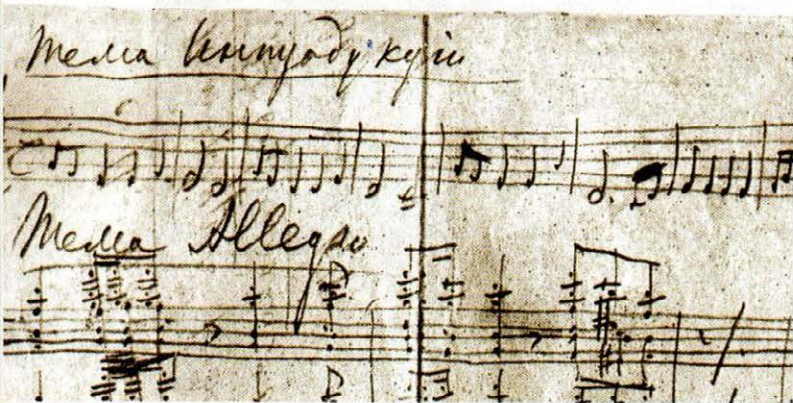 Тема Интродукціи
Тема Allegro